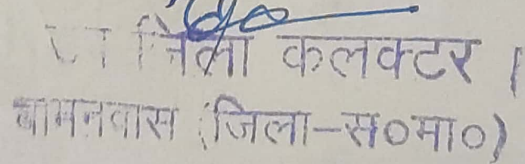 उप जिला कलक्टर ।
बामनवास (जिला-स०मा०)